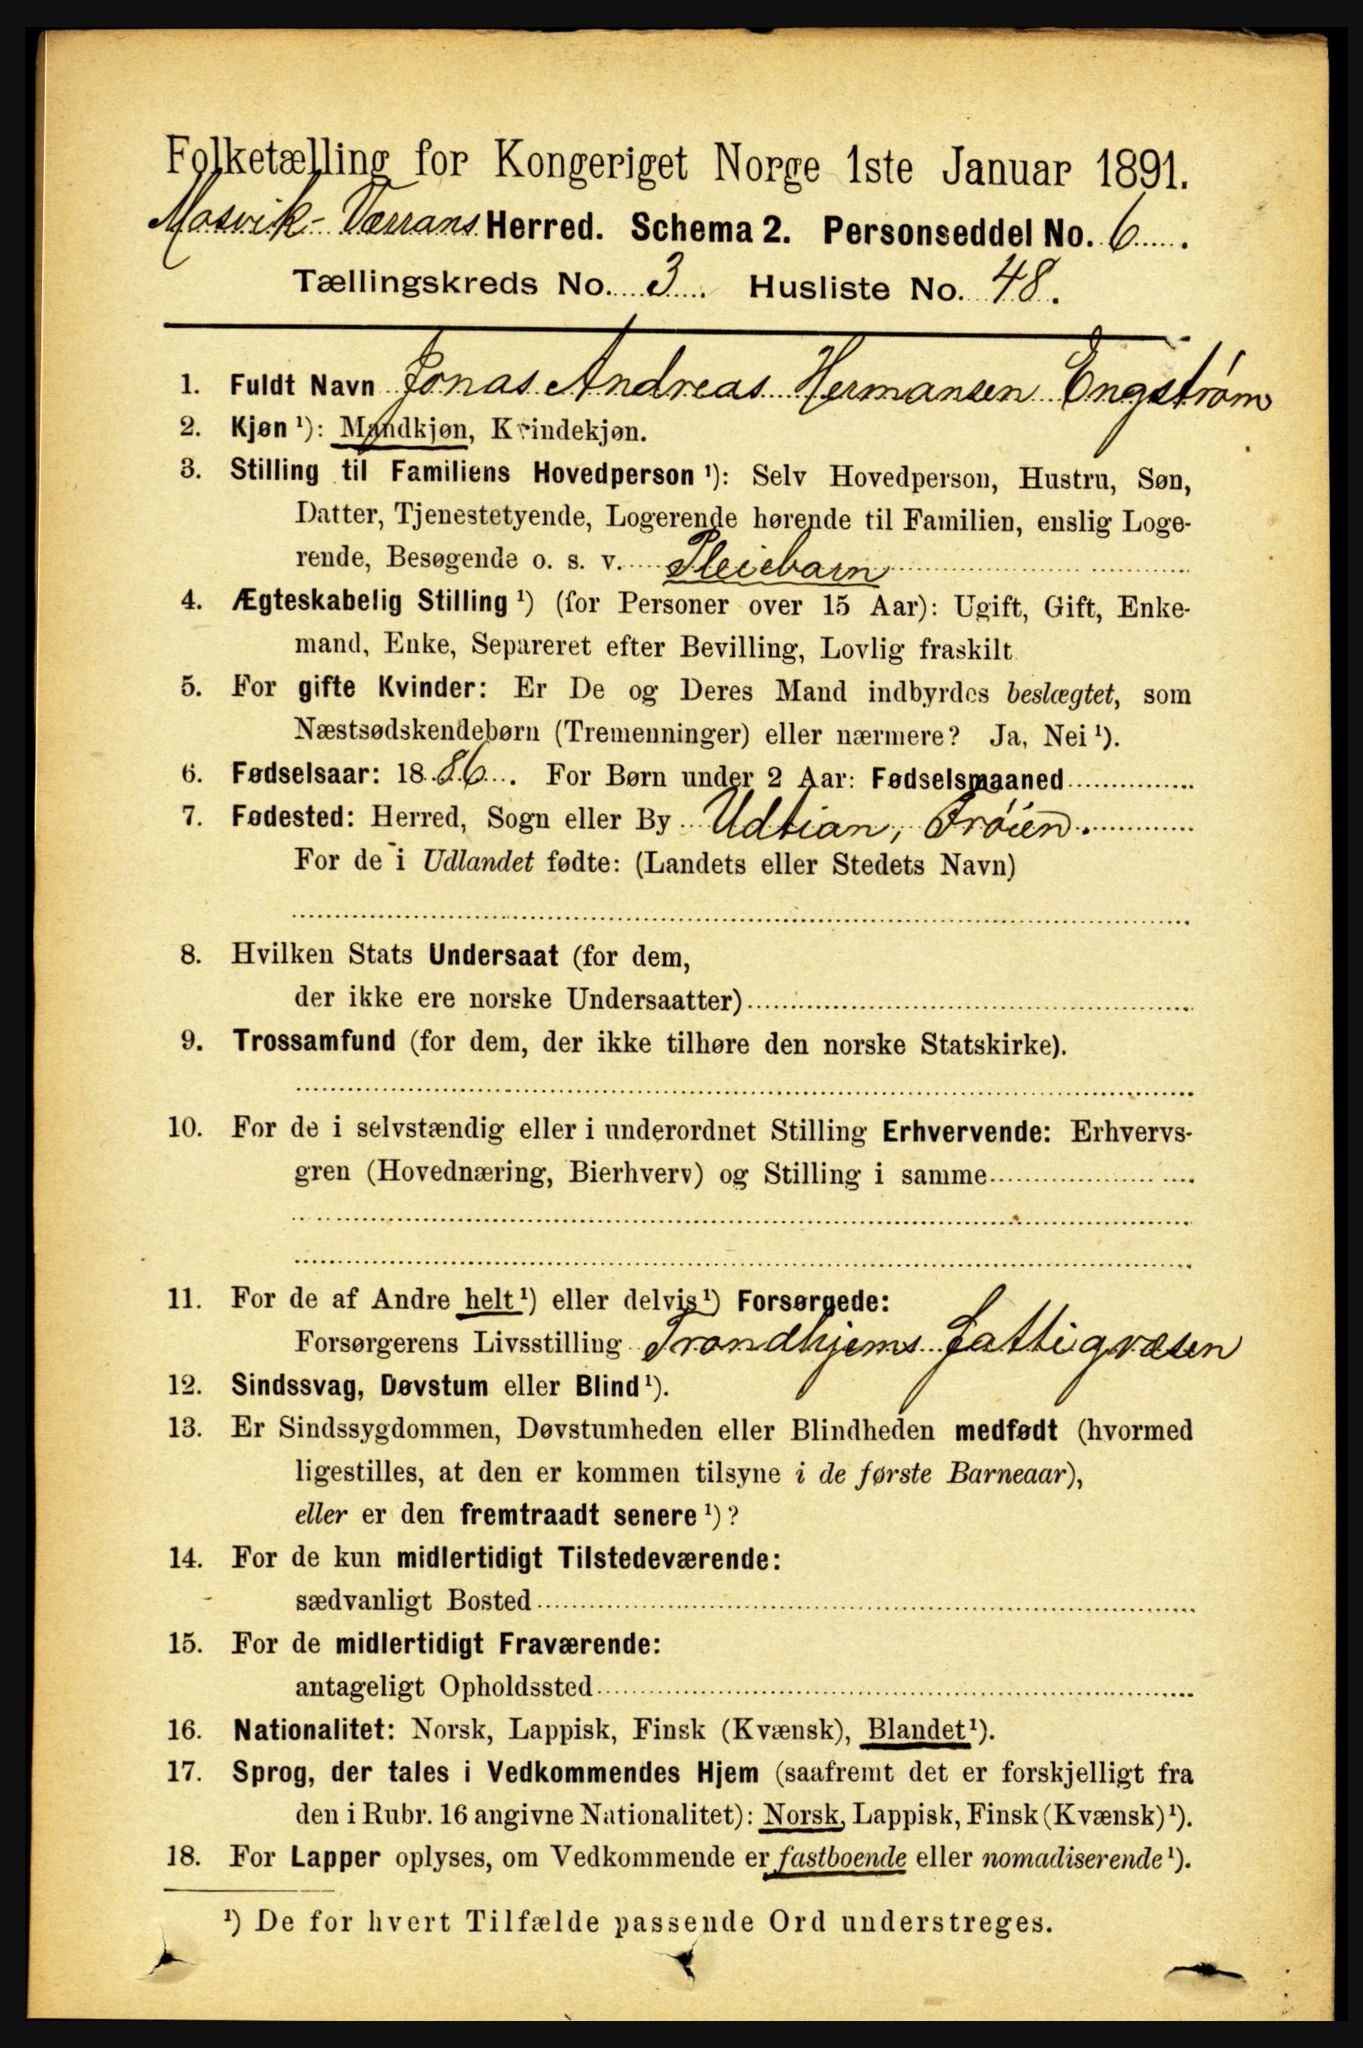 Folketælling for Kongeriget Norge 1ste Januar 1891.
Mosvik-Værrans Herred. Schema 2. Personseddel No. 6.
Tællingskreds No. 3. Husliste No. 48.
1. Fuldt Navn Jonas Andreas Hermansen Engstrøm
2. Kjøn ¹): Mandkjøn, Kvindekjøn.
3. Stilling til Familiens Hovedperson ¹): Selv Hovedperson, Hustru, Søn,
Datter, Tjenestetyende, Logerende hørende til Familien, enslig Loge-
rende, Besøgende o. s. v. Pleiebarn
4. Ægteskabelig Stilling ¹) (for Personer over 15 Aar): Ugift, Gift, Enke-
mand, Enke, Separeret efter Bevilling, Lovlig fraskilt
5. For gifte Kvinder: Er De og Deres Mand indbyrdes beslægtet, som
Næstsødskendebørn (Tremenninger) eller nærmere? Ja, Nei ¹).
6. Fødselsaar: 1886. For Børn under 2 Aar: Fødselsmaaned
7. Fødested: Herred, Sogn eller By Udtian, Frøien.
For de i Udlandet fødte: (Landets eller Stedets Navn)
8. Hvilken Stats Undersaat (for dem,
der ikke ere norske Undersaatter)
9. Trossamfund (for dem, der ikke tilhøre den norske Statskirke).
10. For de i selvstændig eller i underordnet Stilling Erhvervende: Erhvervs-
gren (Hovednæring, Bierhverv) og Stilling i samme
11. For de af Andre helt ¹) eller delvis ¹) Forsørgede:
Forsørgerens Livsstilling Trondhjems Fattigvæsen
12. Sindssvag, Døvstum eller Blind ¹).
13. Er Sindssygdommen, Døvstumheden eller Blindheden medfødt (hvormed
ligestilles, at den er kommen tilsyne i de første Barneaar),
eller er den fremtraadt senere ¹)?
14. For de kun midlertidigt Tilstedeværende:
sædvanligt Bosted
15. For de midlertidigt Fraværende:
antageligt Opholdssted
16. Nationalitet: Norsk, Lappisk, Finsk (Kvænsk), Blandet ¹).
17. Sprog, der tales i Vedkommendes Hjem (saafremt det er forskjelligt fra
den i Rubr. 16 angivne Nationalitet): Norsk, Lappisk, Finsk (Kvænsk) ¹).
18. For Lapper oplyses, om Vedkommende er fastboende eller nomadiserende ¹).
¹) De for hvert Tilfælde passende Ord understreges.